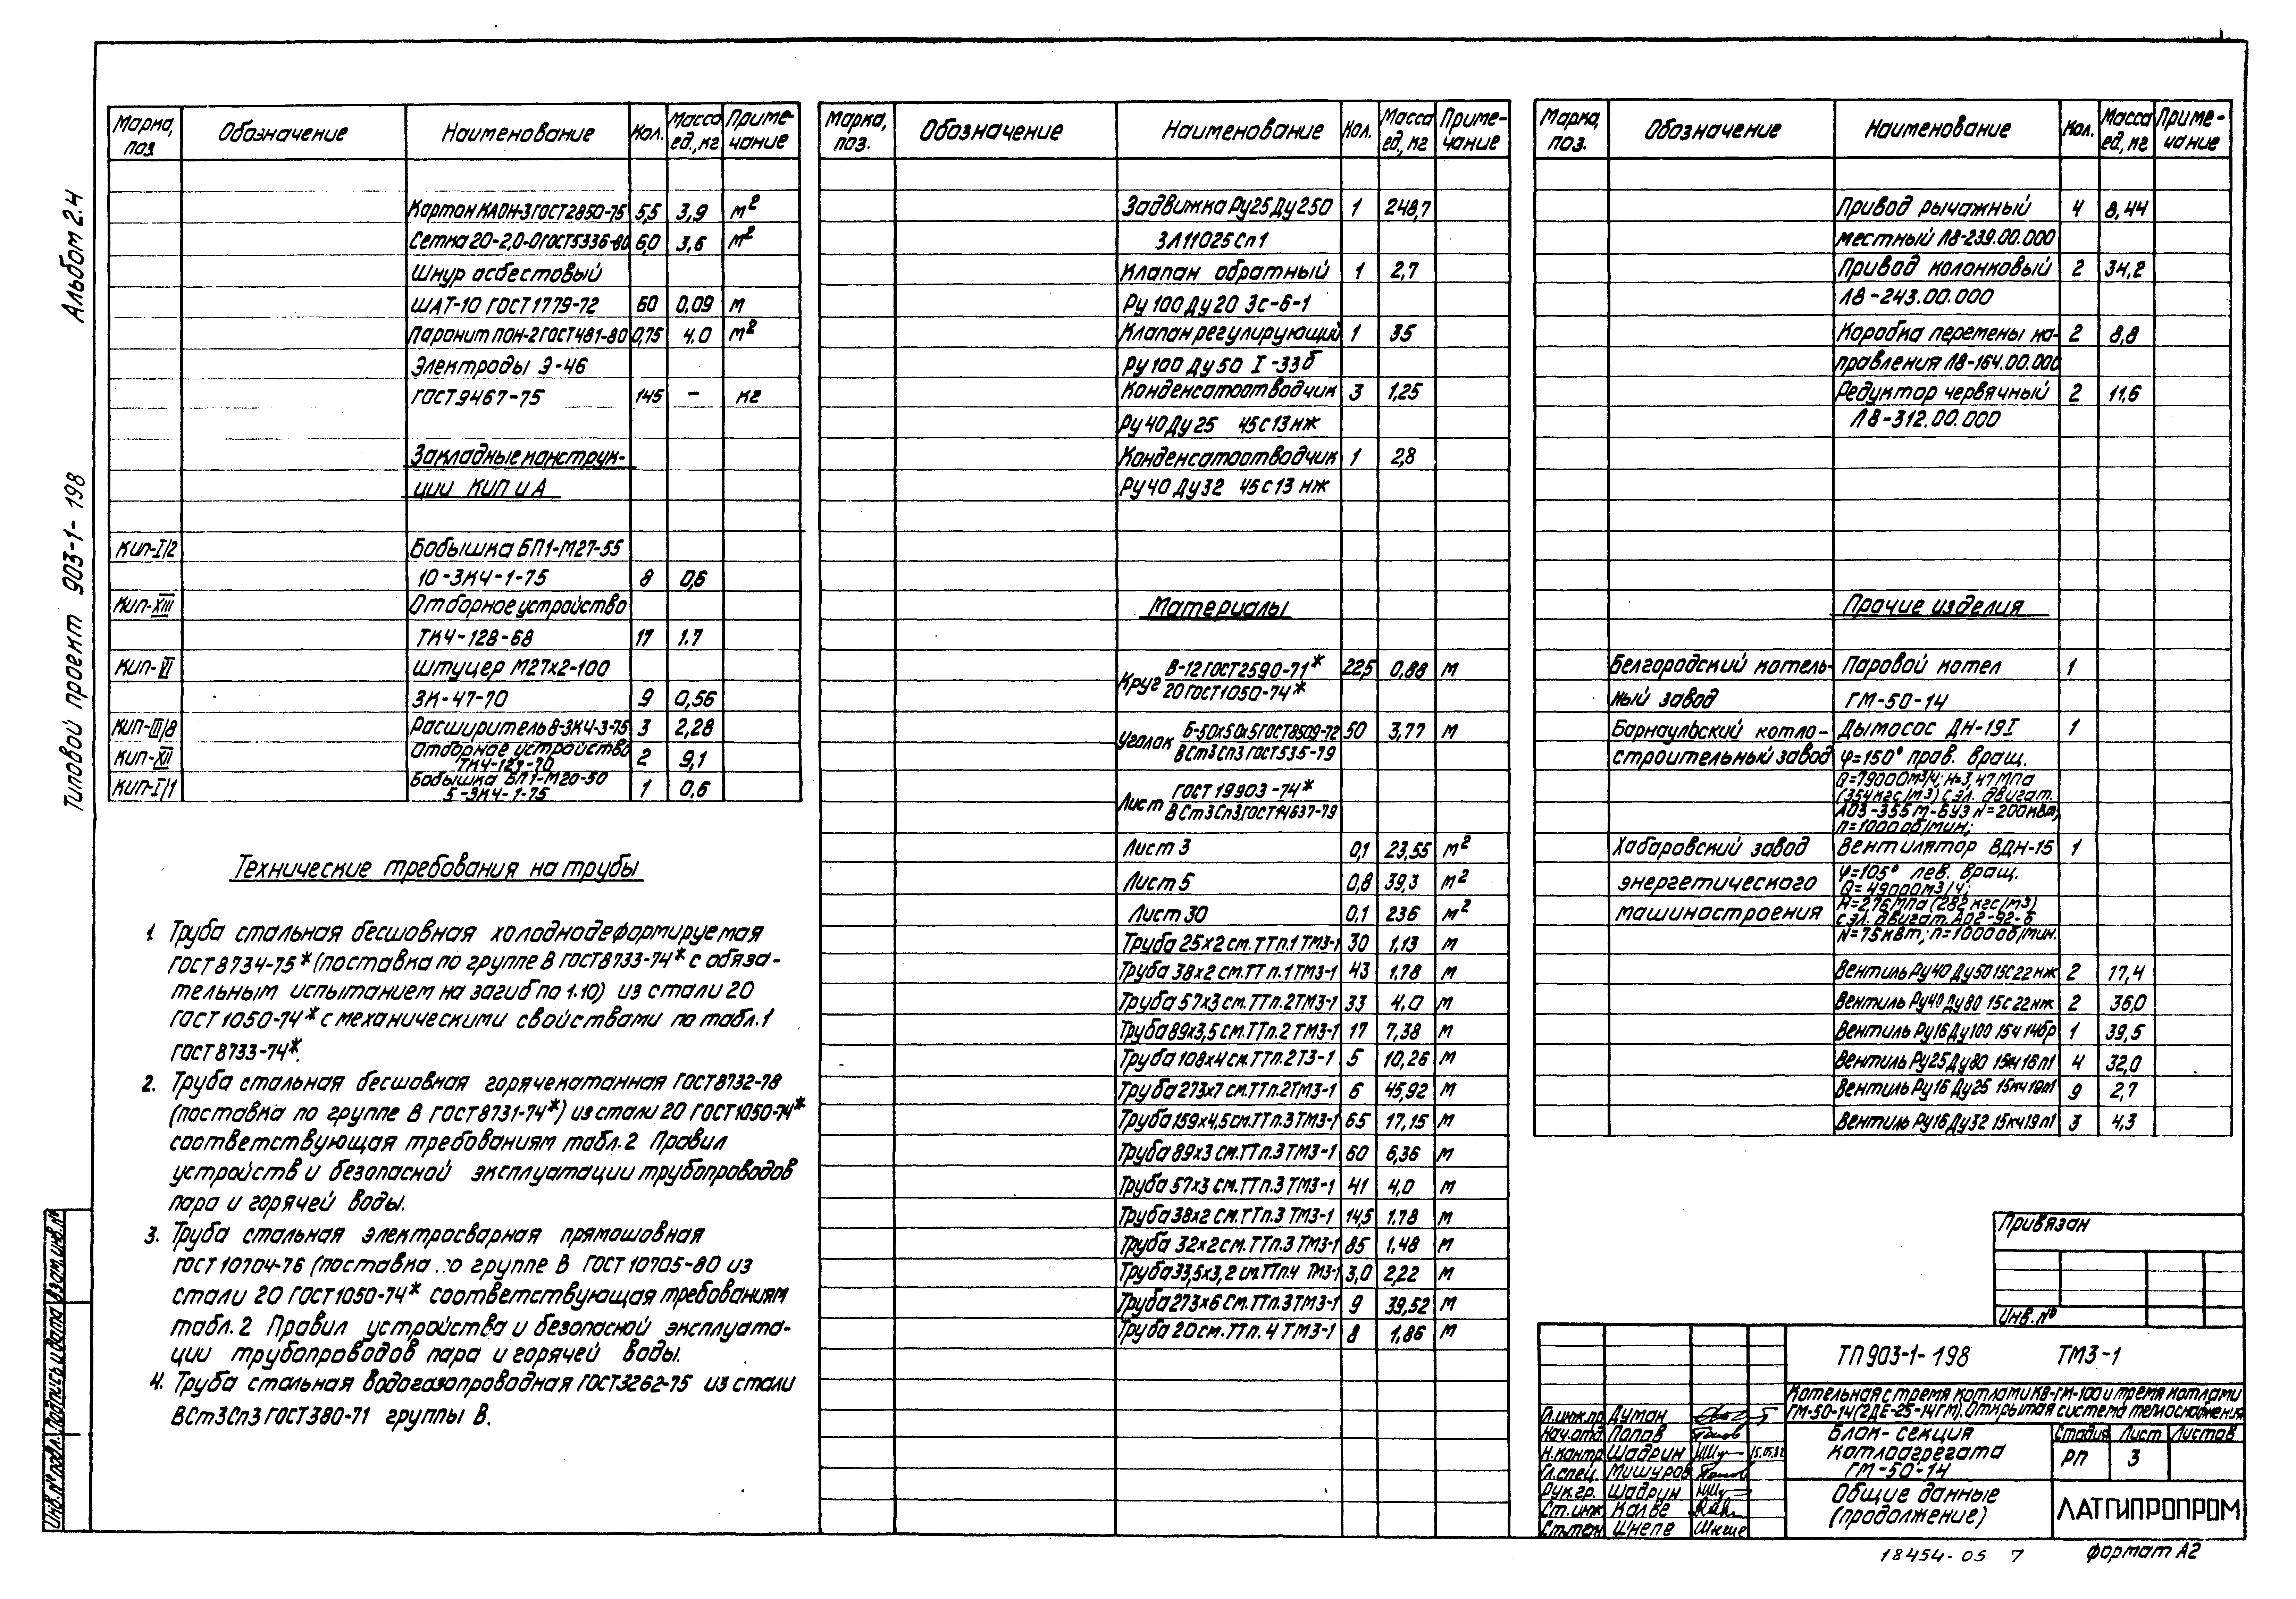 Альбом 2.4
Типовой проект 903-1-198
Марка, поз. Обозначение Наименование Кол. Масса ед., кг Примечание
Картон КАОН-3 ГОСТ 2850-75 5,5 3,9 м²
Сетка 20-2,0-0 ГОСТ 5336-80 6,0 3,6 м²
Шнур асбестовый
ШАТ-10 ГОСТ 1779-72 60 0,09 м
Паронит ПОН-2 ГОСТ 481-80 0,75 4,0 м²
Электроды Э-46
ГОСТ 9467-75 145 – кг
Закладные конструк-
ции КИП и А
КИП-I/2 Бобышка БП1-М27-55
10-ЗК4-1-75 8 0,6
КИП-XIII Отборное устройство
ТК4-128-68 17 1.7
КИП-VI Штуцер М27х2-100
ЗК-47-70 9 0,56
КИП-III/8 Расширитель 8-ЗК4-3-75 3 2,28
КИП-XII Отборное устройство 2 9,1
ТК4-123-70
КИП-I/1 Бобышка БП1-М20-50 1 0,6
5-ЗК4-1-75
Технические требования на трубы
1. Труба стальная бесшовная холоднодеформируемая
ГОСТ 8734-75* (поставка по группе В ГОСТ 8733-74* с обяза-
тельным испытанием на загиб по 1.10) из стали 20
ГОСТ 1050-74* с механическими свойствами по табл.1
ГОСТ 8733-74*.
2. Труба стальная бесшовная горячекатанная ГОСТ 8732-78
(поставка по группе В ГОСТ 8731-74*) из стали 20 ГОСТ 1050-74*
соответствующая требованиям табл.2 Правил
устройств и безопасной эксплуатации трубопроводов
пара и горячей воды.
3. Труба стальная электросварная прямошовная
ГОСТ 10704-76 (поставка по группе В ГОСТ 10705-80 из
стали 20 ГОСТ 1050-74* соответствующая требованиям
табл.2 Правил устройства и безопасной эксплуата-
ции трубопроводов пара и горячей воды.
4. Труба стальная водогазопроводная ГОСТ 3262-75 из стали
ВСт3Сп3 ГОСТ 380-71 группы В.
Марка, поз. Обозначение Наименование Кол. Масса ед, кг Примечание
Задвижка Ру25 Ду250 1 248,7
ЗЛ11025Сп1
Клапан обратный 1 2,7
Ру100 Ду20 3с-6-1
Клапан регулирующий 1 35
Ру100 Ду50 I-33б
Конденсатоотводчик 3 1,25
Ру40 Ду25 45с13нж
Конденсатоотводчик 1 2,8
Ру40 Ду32 45с13нж
Материалы
Круг В-12 ГОСТ 2590-71* 22,5 0,88 м
20 ГОСТ 1050-74*
Уголок Б-50х50х5 ГОСТ 8509-72 50 3,77 м
ВСт3Сп3 ГОСТ 535-79
Лист ГОСТ 19903-74*
ВСт3Сп3 ГОСТ 14637-79
Лист 3 0,1 23,55 м²
Лист 5 0,8 39,3 м²
Лист 30 0,1 236 м²
Труба 25х2 см.ТТп.1 ТМ3-1 30 1.13 м
Труба 38х2 см.ТТ п.1 ТМ3-1 43 1.78 м
Труба 57х3 см.ТТп.2 ТМ3-1 33 4,0 м
Труба 89х3,5 см.ТТп.2 ТМ3-1 17 7,38 м
Труба 108х4 см.ТТп.2 Т3-1 5 10,26 м
Труба 273х7 см.ТТп.2 ТМ3-1 6 45,92 м
Труба 159х4,5 см.ТТп.3 ТМ3-1 65 17,15 м
Труба 89х3 см.ТТп.3 ТМ3-1 60 6,36 м
Труба 57х3 см.ТТп.3 ТМ3-1 41 4,0 м
Труба 38х2 см.ТТп.3 ТМ3-1 14,5 1.78 м
Труба 32х2 см.ТТп.3 ТМ3-1 85 1,48 м
Труба 33,5х3,2 см.ТТп.4 ТМ3-1 3,0 2,22 м
Труба 273х6 см.ТТп.3 ТМ3-1 9 39,52 м
Труба 20 см.ТТп.4 ТМ3-1 8 1,86 м
Марка, поз. Обозначение Наименование Кол. Масса ед, кг Примечание
Привод рычажный 4 8,44
местный Л8-239.00.000
Привод колонковый 2 34,2
Л8-243.00.000
Коробка перемены на- 2 8,8
правления Л8-164.00.000
Редуктор червячный 2 11,6
Л8-312.00.000
Прочие изделия
Белгородский котель- Паровой котел 1
ный завод ГМ-50-14
Барнаульский котло- Дымосос ДН-19I 1
строительный завод φ=150° прав. вращ.
Q=79000м3/ч; Н=3,47МПа
(354кгс/м3) с эл. двигат.
АО3-355м-6У3 N=200кВт;
n=1000об/мин;
Хабаровский завод Вентилятор ВДН-15 1
энергетического φ=105° лев. вращ.
Q=49000м3/ч;
машиностроения Н=2,76МПа (282кгс/м3)
с эл. двигат. АО2-92-6
N=75кВт; n=1000об/мин.
Вентиль Ру40 Ду50 15с22нж 2 17,4
Вентиль Ру40 Ду80 15с22нж 2 36,0
Вентиль Ру16 Ду100 15ч14бр 1 39,5
Вентиль Ру25 Ду80 15кч16п1 4 32,0
Вентиль Ру16 Ду25 15кч19п1 9 2,7
Вентиль Ру16 Ду32 15кч19п1 3 4,3
Привязан
Инв.№
ТП 903-1-198 ТМ3-1
Котельная с тремя котлами КВ-ГМ-100 и тремя котлами
ГМ-50-14 (2ДЕ-25-14ГМ). Открытая система теплоснабжения
Гл.инж.пр. Думан
Нач.отд. Попов
Н.контр. Шадрин 15.05.82
Гл.спец. Мишуров
Рук.гр. Шадрин
Ст.инж. Калве
Ст.техн Шнепе
Блок-секция
котлоагрегата
ГМ-50-14
Стадия Лист Листов
РП 3
Общие данные
(продолжение)
ЛАТГИПРОПРОМ
18454-05 7
формат А2
Инв.№ подл. Подпись и дата Взам.инв.№